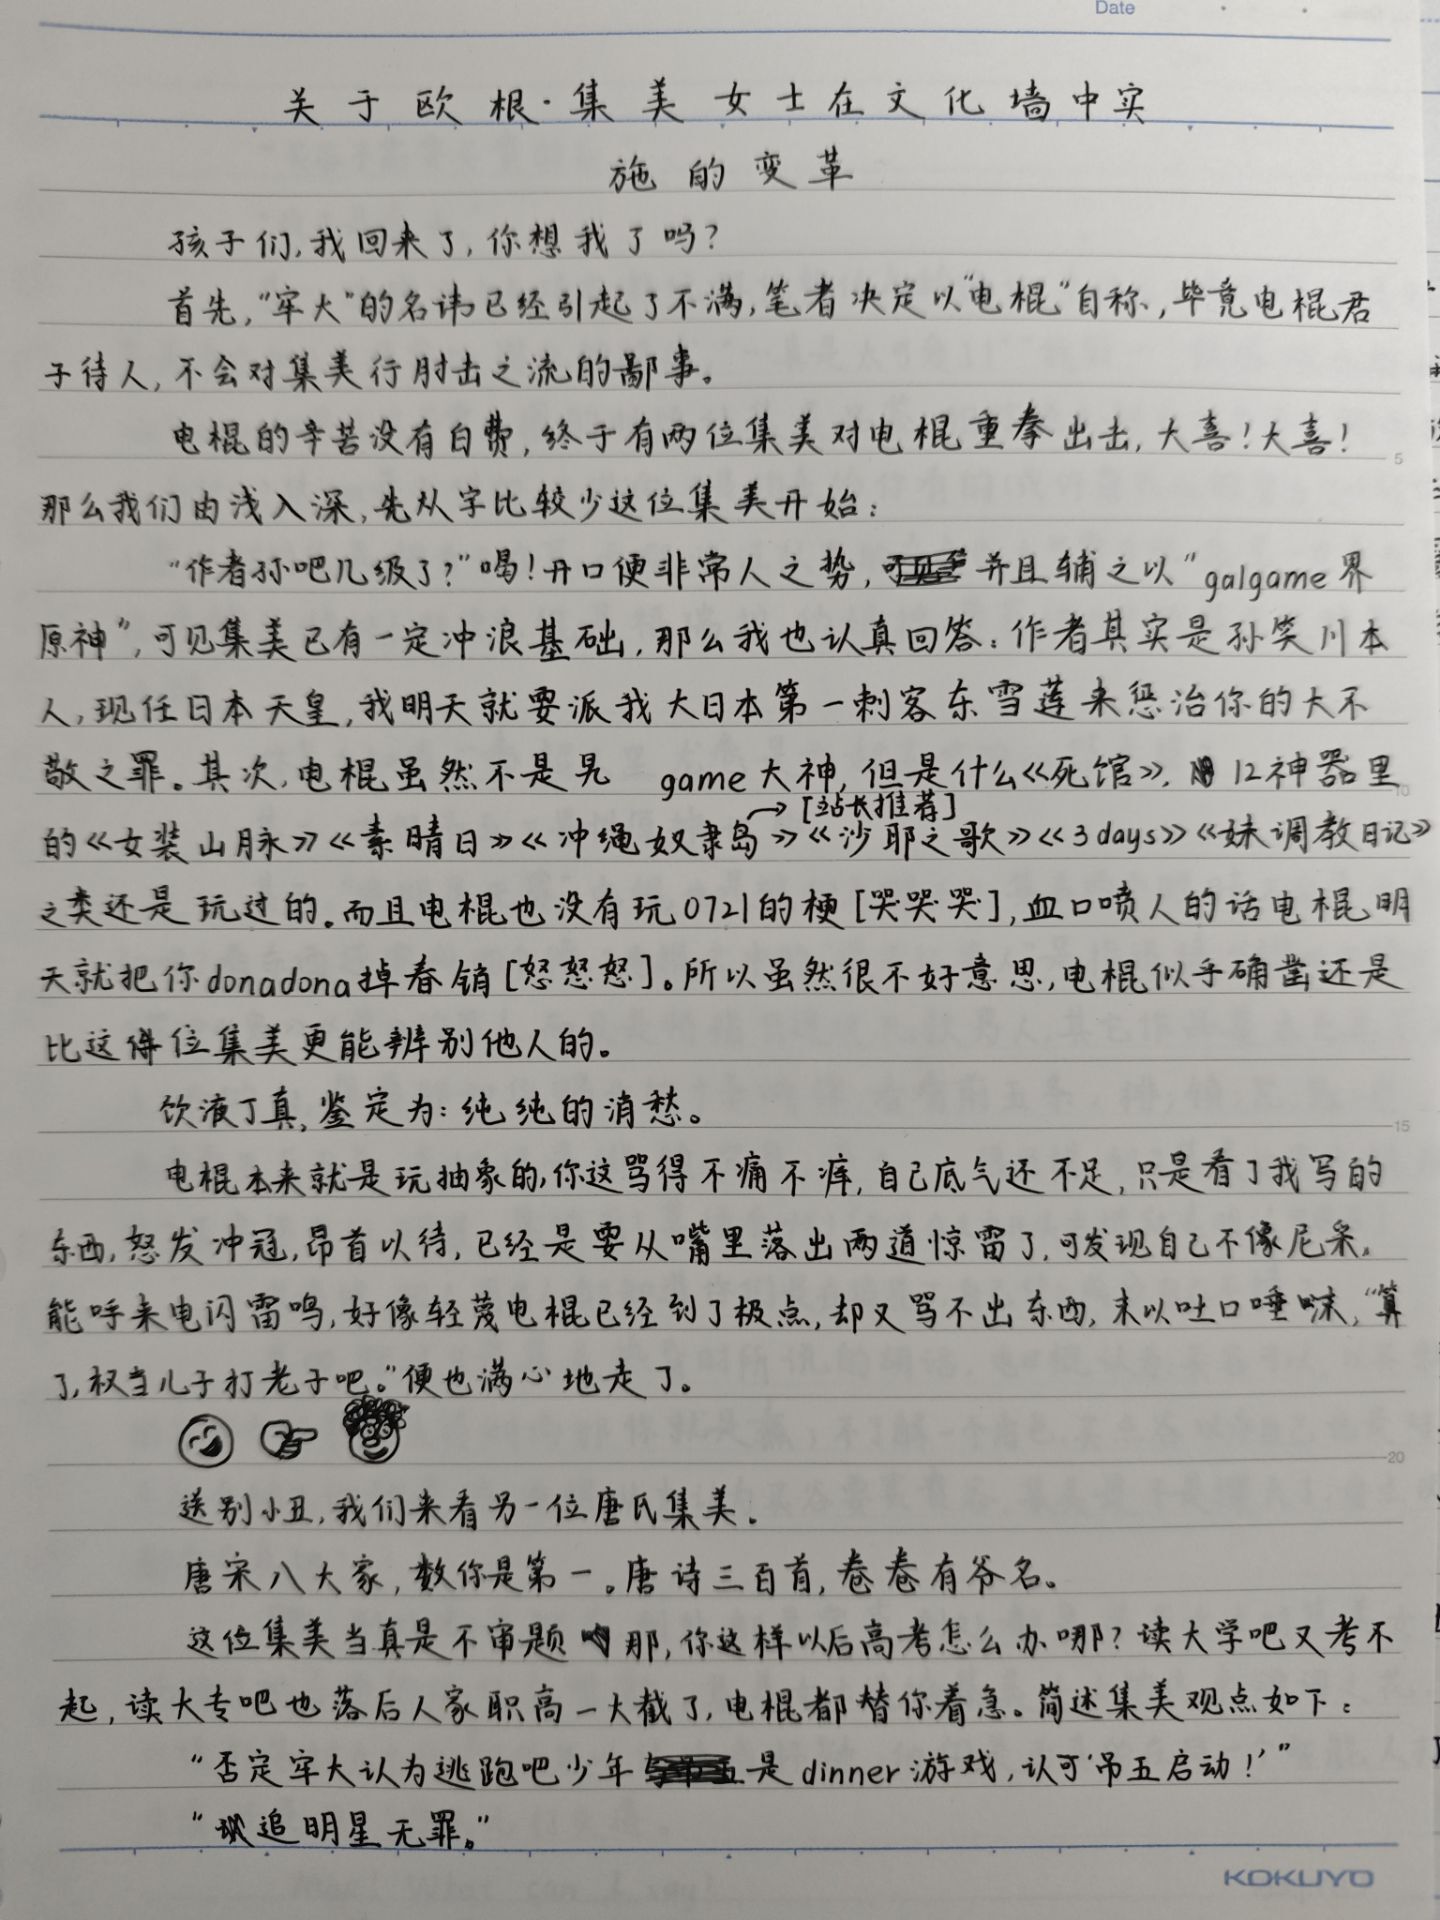 Date
关于欧根·集美女士在文化墙中实
施的变革
孩子们,我回来了,你想我了吗?
首先,“牢大”的名讳已经引起了不满,笔者决定以“电棍”自称,毕竟电棍君
子待人,不会对集美行肘击之流的鄙事。
电棍的辛苦没有白费,终于有两位集美对电棍重拳出击,大喜!大喜!
5
那么我们由浅入深,先从字比较少这位集美开始:
“作者孙吧几级了?”喝!开口便非常人之势,并且辅之以“galgame界
原神”,可见集美已有一定冲浪基础,那么我也认真回答:作者其实是孙笑川本
人,现任日本天皇,我明天就要派我大日本第一刺客东雪莲来惩治你的大不
敬之罪。其次,电棍虽然不是旯 game大神,但是什么《死馆》,12神器里
10
→[站长推荐]
的《女装山脉》《素晴日》《冲绳奴隶岛》《沙耶之歌》《3days》《妹调教日记》
之类还是玩过的。而且电棍也没有玩0721的梗[哭哭哭],血口喷人的话电棍明
天就把你donadona掉春销[怒怒怒]。所以虽然很不好意思,电棍似乎确凿还是
比这位集美更能辨别他人的。
饮液丁真,鉴定为:纯纯的消愁。
15
电棍本来就是玩抽象的,你这骂得不痛不痒,自己底气还不足,只是看了我写的
东西,怒发冲冠,昂首以待,已经是要从嘴里落出两道惊雷了,可发现自己不像尼采,
能呼来电闪雷鸣,好像轻蔑电棍已经到了极点,却又骂不出东西,末以吐口唾沫,“算
了,权当儿子打老子吧。”便也满心地走了。
20
送别小丑,我们来看另一位唐氏集美.
唐宋八大家,数你是第一。唐诗三百首,卷卷有爷名。
这位集美当真是不审题那,你这样以后高考怎么办哪?读大学吧又考不
起,读大专吧也落后人家职高一大截了,电棍都替你着急。简述集美观点如下:
“否定牢大认为逃跑吧少年是dinner游戏,认可‘吊五启动!’”
“追明星无罪。”
KOKUYO